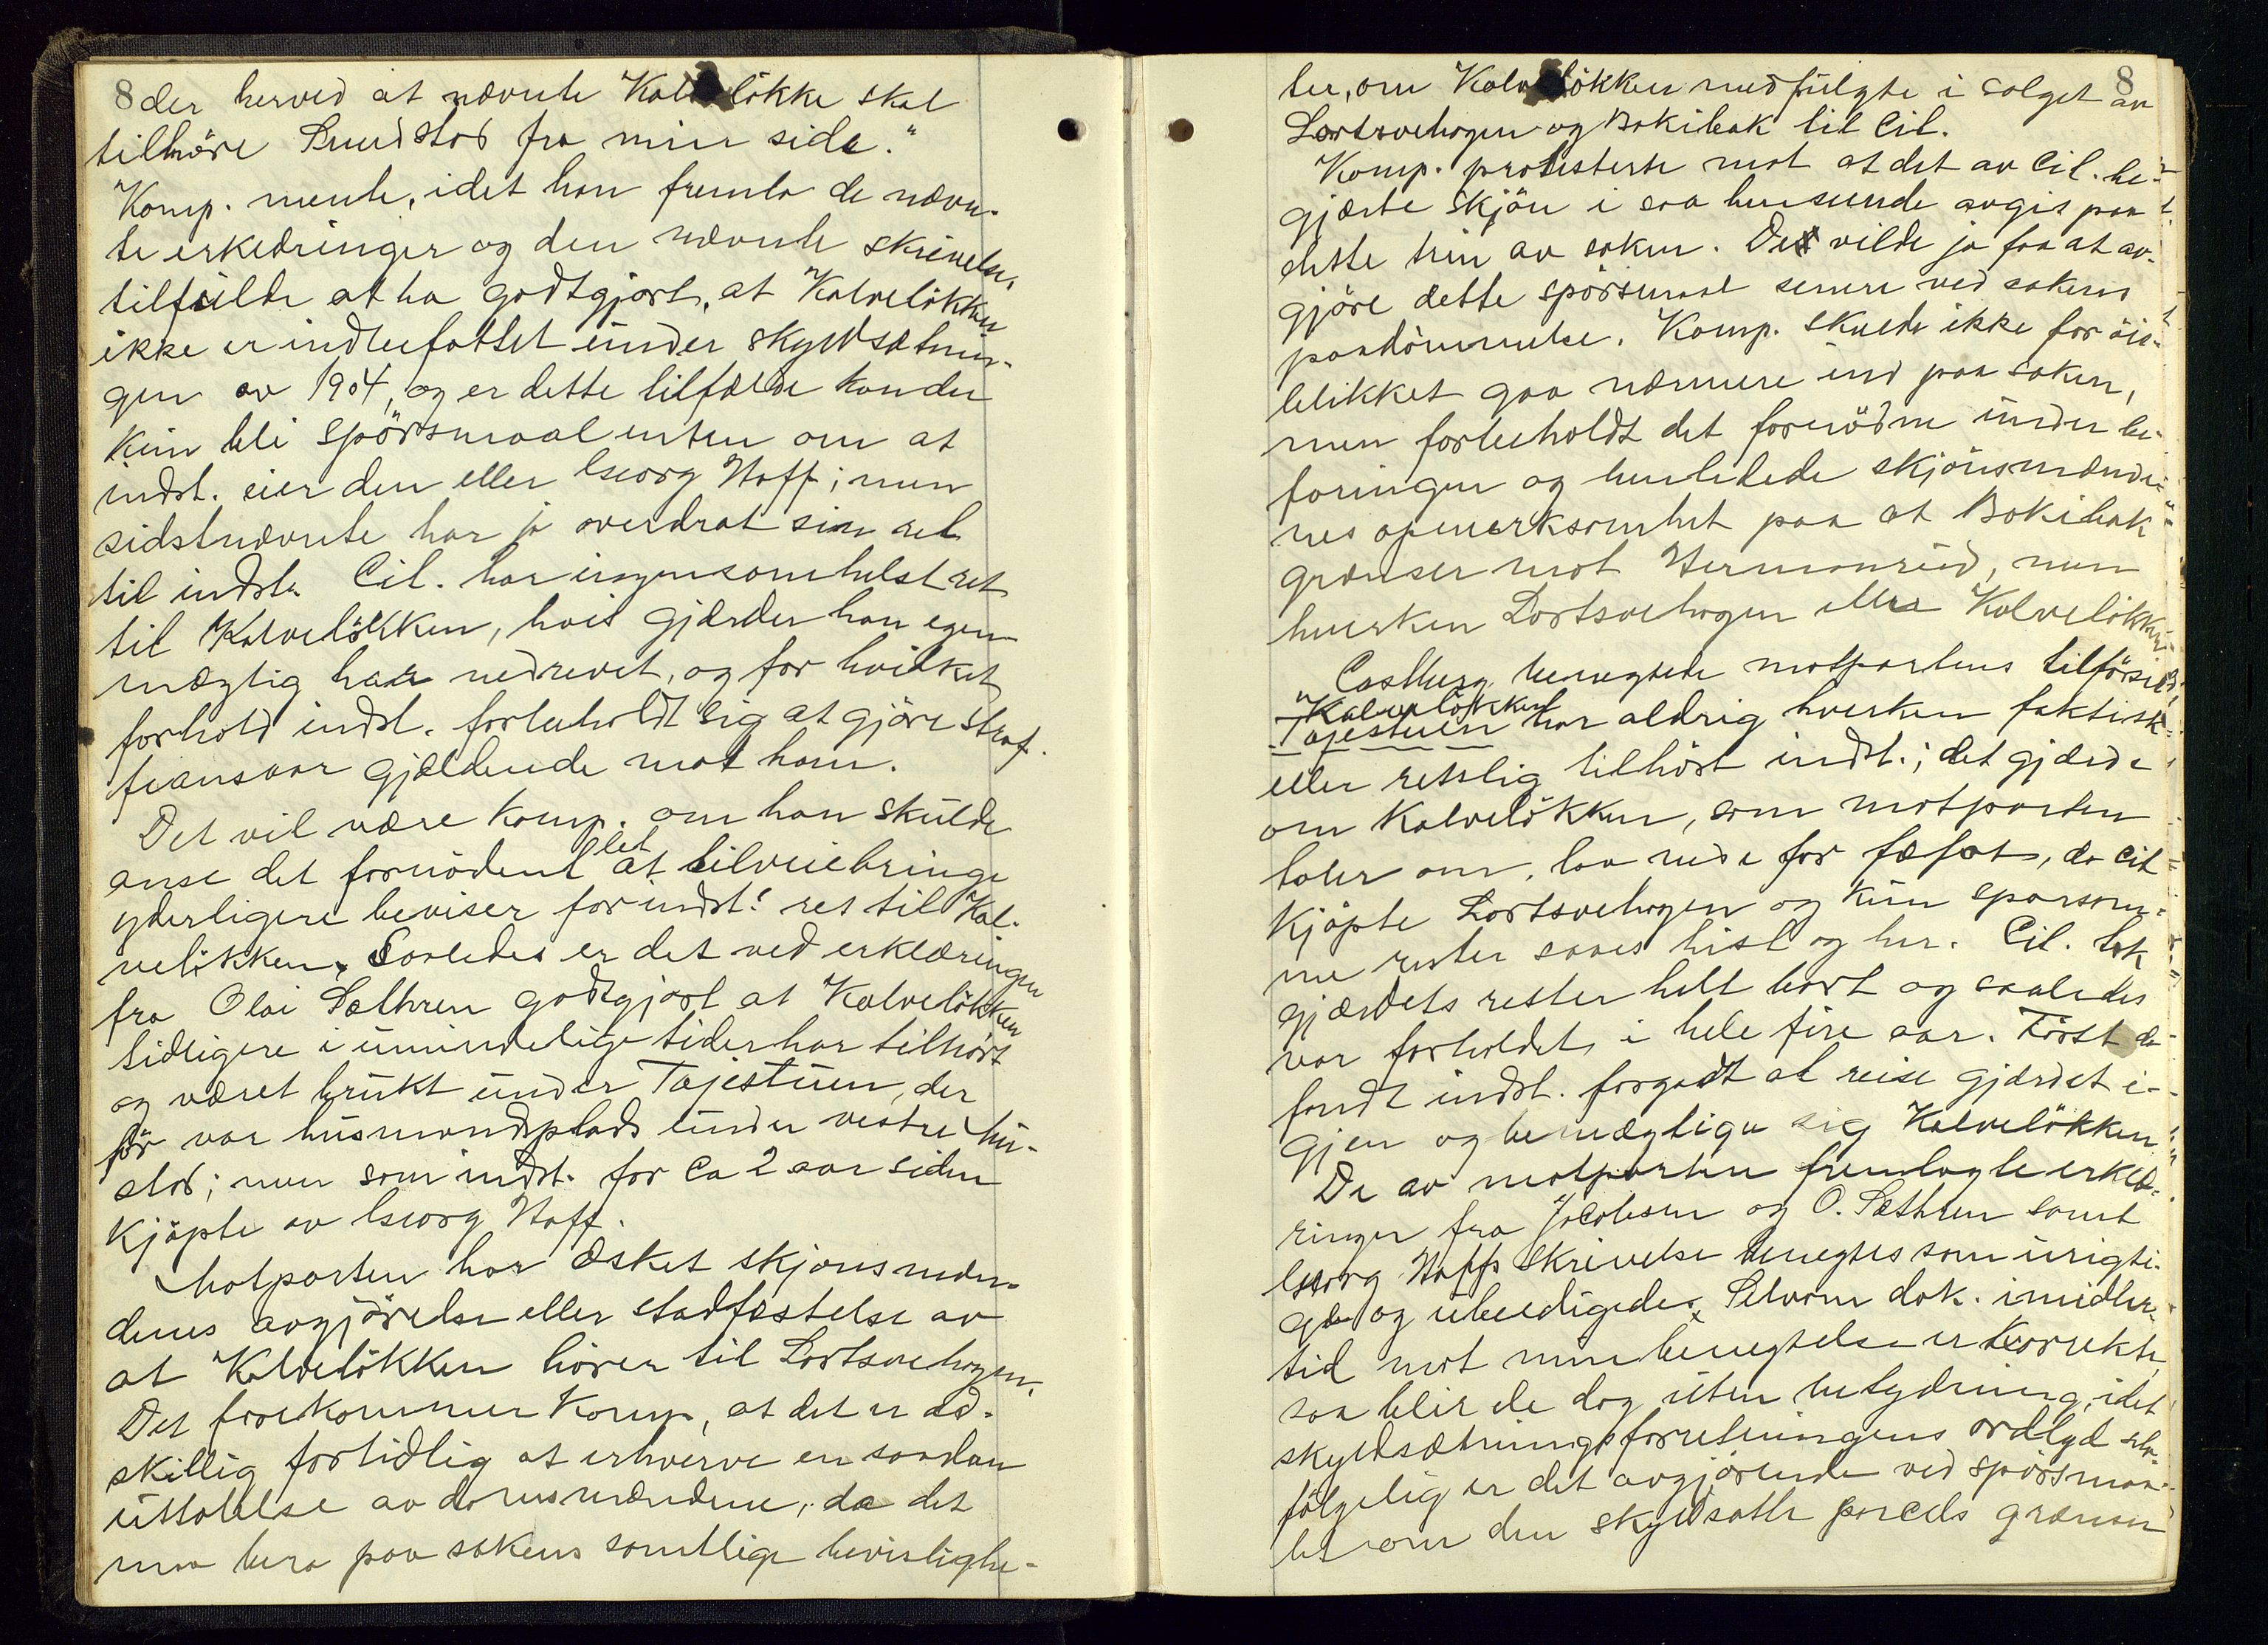 8 der herved at nævnte Kalveløkke skal
tilhöre Smedstad fra min side."
Komp. mente, idet han fremla de nævn-
te erkelringer og den nævnte skrivelse,
tilfulde at ha godtgjort, at Kalvelökken
ikke er indbefattet under skyldsætnin-
gen av 1904, og er dette tilfælde kan der
kun bli spörsmaal enten om at
indst. eier den eller Georg Hoff; men
sidstnævnte har jo overdrat sin ret
til indst. Cit. har ingensomhelst ret
til Kalvelökken, hvis gjærder han egen
mægtig har nedrevet, og for hvilket
forhold indst. forbeholdt sig at gjöre straf-
feansvar gjældende mot ham.
Det vil være komp. om han skulde
anse det fornödent let at tilveiebringe
yderligere beviser for indst.s ret til Kal-
velökken. Saaledes er det ved erklæringen
fra Olai Sæthren godtgjort at Kalvelökken
tidligere i umindelige tider har tilhört
og været brukt under Tajestuen, der
för var husmandsplads under vestre Hu-
stad; men som indst. for ca 2 aar siden
kjöpte av Georg Hoff.
Motparten har æsket skjönsmæn-
denes avgjörelse eller stadfæstelse av
at Kalvelökken hörer til Lortsvehagen.
Det forekommer komp, at det er ad-
skillig fortidlig at erhverve en saadan
uttalelse av domsmændene, da det
maa bero paa sakens samtlige bevislighe-
8
ter, om Kalvelökken medfulgte i salget av
Lortsvehagen og Bakibak til Cit.
Komp. protesterte mot at det av Cit. be-
gjærte skjön i saa henseende avgis paa
dette trin av saken. Det vilde jo faa at av-
gjöre dette spörsmaal senere ved sakens
paadömmelse. Komp. skulde ikke for öie-
blikket gaa nærmere ind paa saken,
men forbeholdt det fornödne under be-
faringen og henledede skjönsmænde-
nes opmerksomhet paa at Bakibak
grænser mot Hermanrud, men
hverken Lortsvehagen eller Kalvelökken
Castberg benegtede motpartens tilförsel,
Kalvelökken
Tajestuen har aldrig hverken faktisk
eller retslig tilhört indst.; det gjærde
om Kalvelökken, som motparten
taler om, laa nede for fæfot, da cit
kjöpte Lortsvehagen og kun sparsom-
me rester saaes hist og her. Cit. tok
gjærdets rester helt bort og saaledes
var forholdet i hele fire aar. Först da
fandt indst. forgodt at reise gjærdet i-
gjen og bemægtige sig Kalvelökken
De av motparten fremlagte erklæ-
ringer fra Jacobsen og O. Sæthren samt
Georg Hoffs skrivelse benegtes som urigti-
ge og ubeedigede. Selvom dok. imidler-
tid mot min benegtelse er korrekte,
saa blir de dog uten betydning, idet
skyldsætningsforretningens ordlyd selv-
fölgelig er det avgjörende ved spörsmaa-
let om den skyldsatte parcels grænser